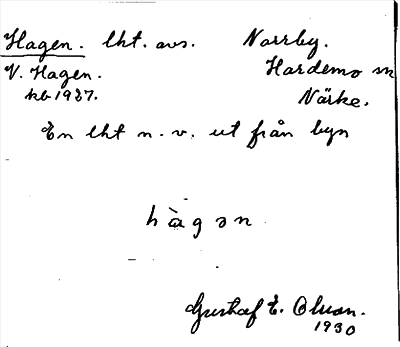 Hagen. lht. avs. Norrby.
V. Hagen. Hardemo sn
kb 1927. Närke.
En lht n. v. ut från byn
h à g ə n
Gustaf E. Olson.
1930